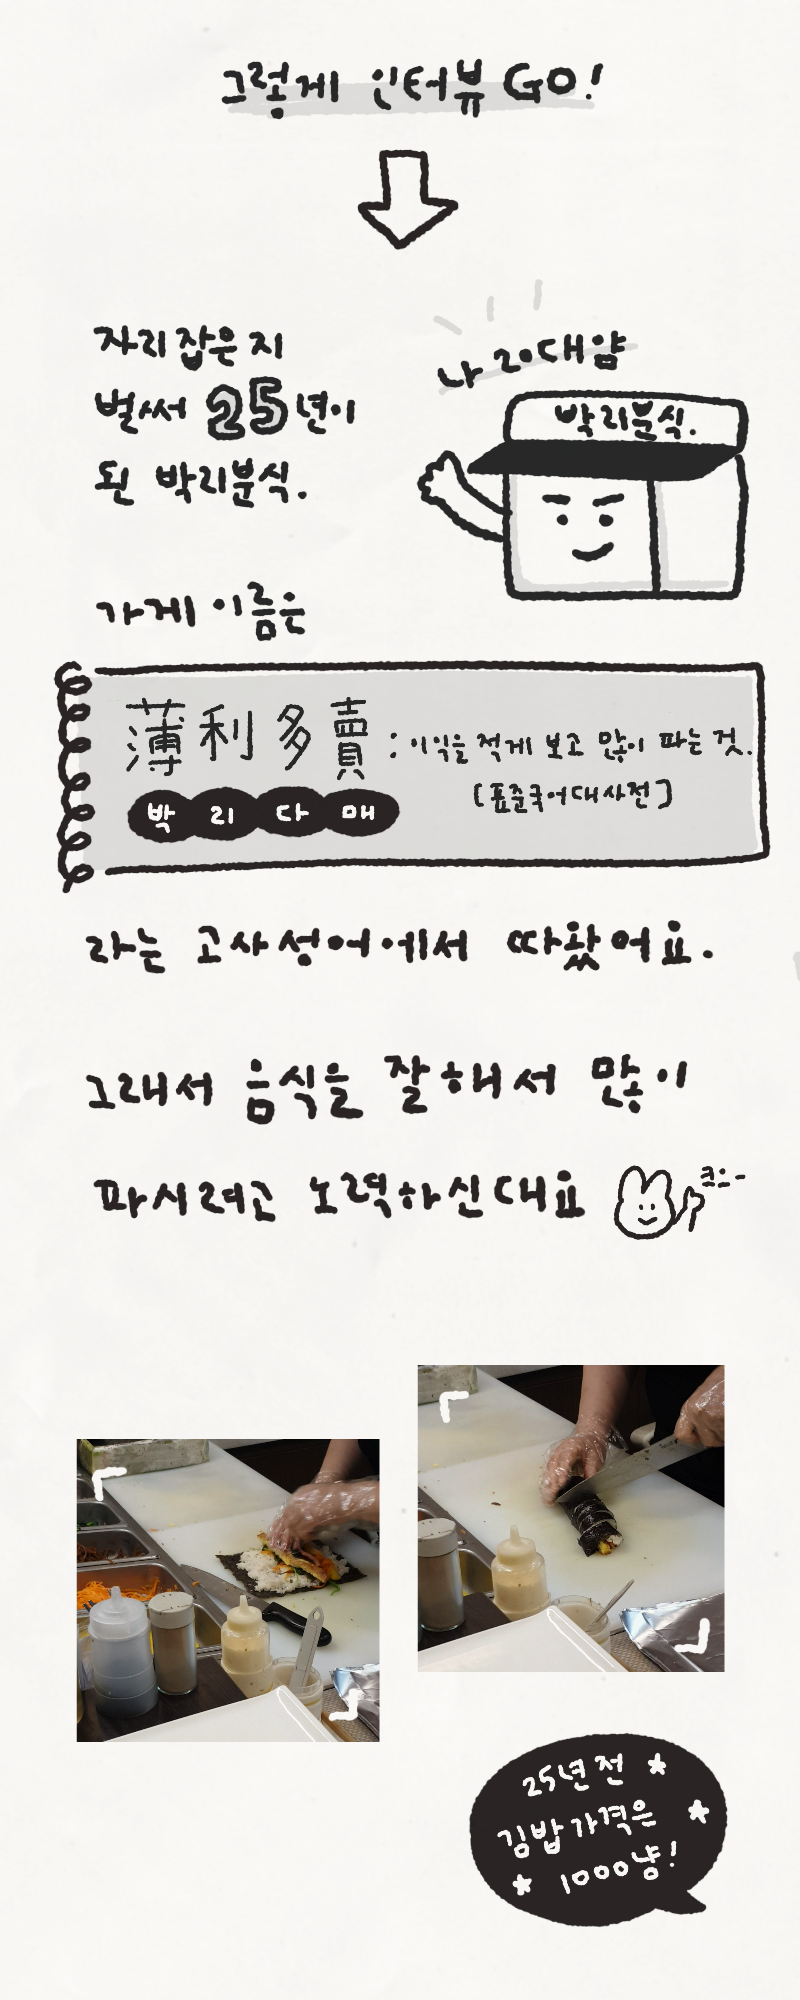 그렇게 인터뷰 GO!
자리 잡은 지
벌써 25년이
된 박리분식.
나 20대얌
박리분식.
가게 이름은
薄利多賣 : 이익을 적게 보고 많이 파는 것.
박 리 다 매
[표준국어대사전]
라는 고사성어에서 따왔어요.
그래서 음식을 잘해서 많이
파시려고 노력하신대요
코쓱-
25년 전
김밥 가격은
1000냥!